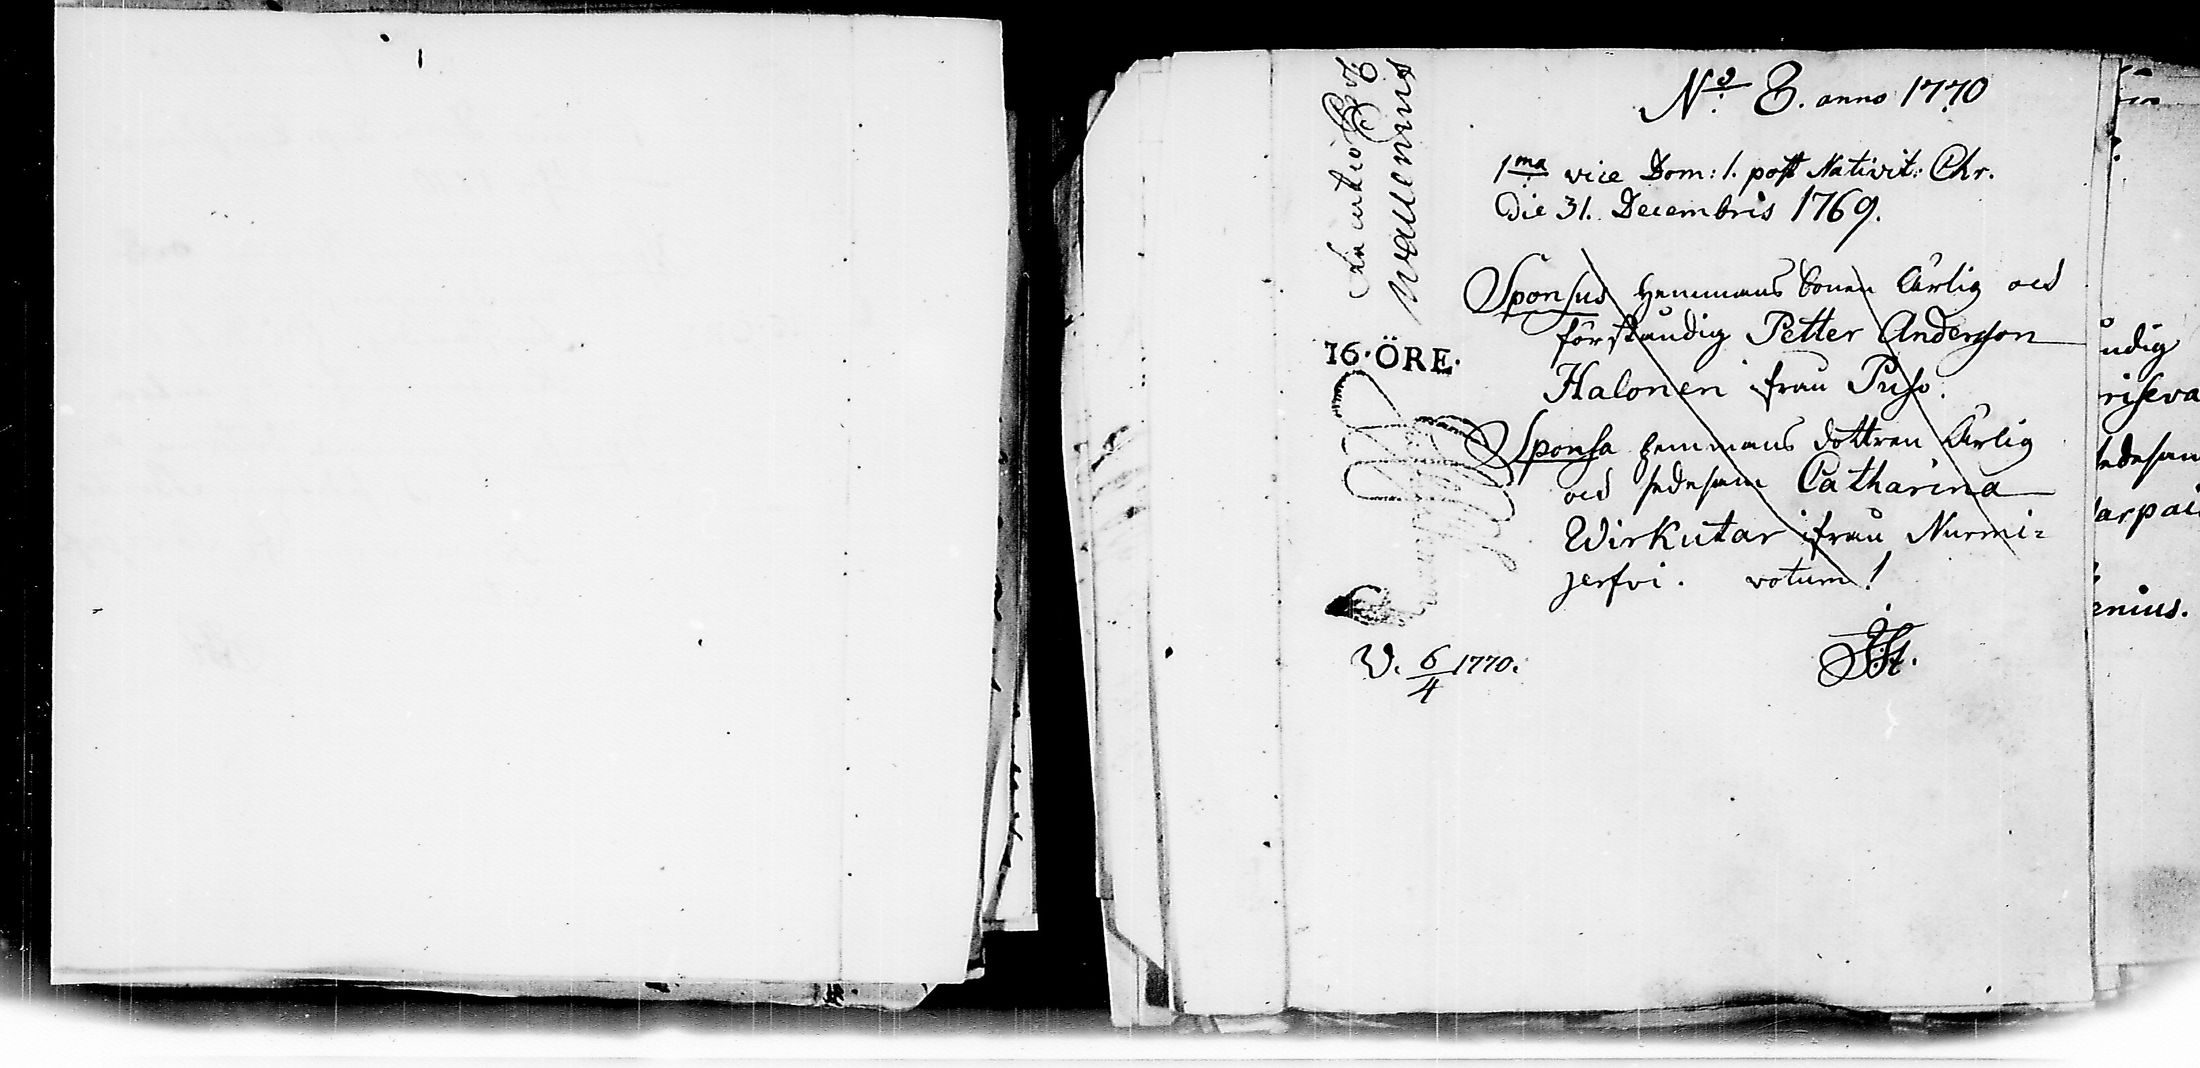 No 8. anno 1770
1ma vice Dom: 1. post Nativit: Chr.
die 31. Decembris 1769.
Sponsus Hemmans bonen Ärlig och
förståndig Petter Anderson
Halonen ifrån Puso.
Sponsa hemmans dottren Ärlig
och sedesam Catharina
Wirkutar ifrån Nurmi=
jerfvi. votum!
16·ÖRE.
Wallenius
V. 6/4 1770.
udig
edesam
arpai
enius.